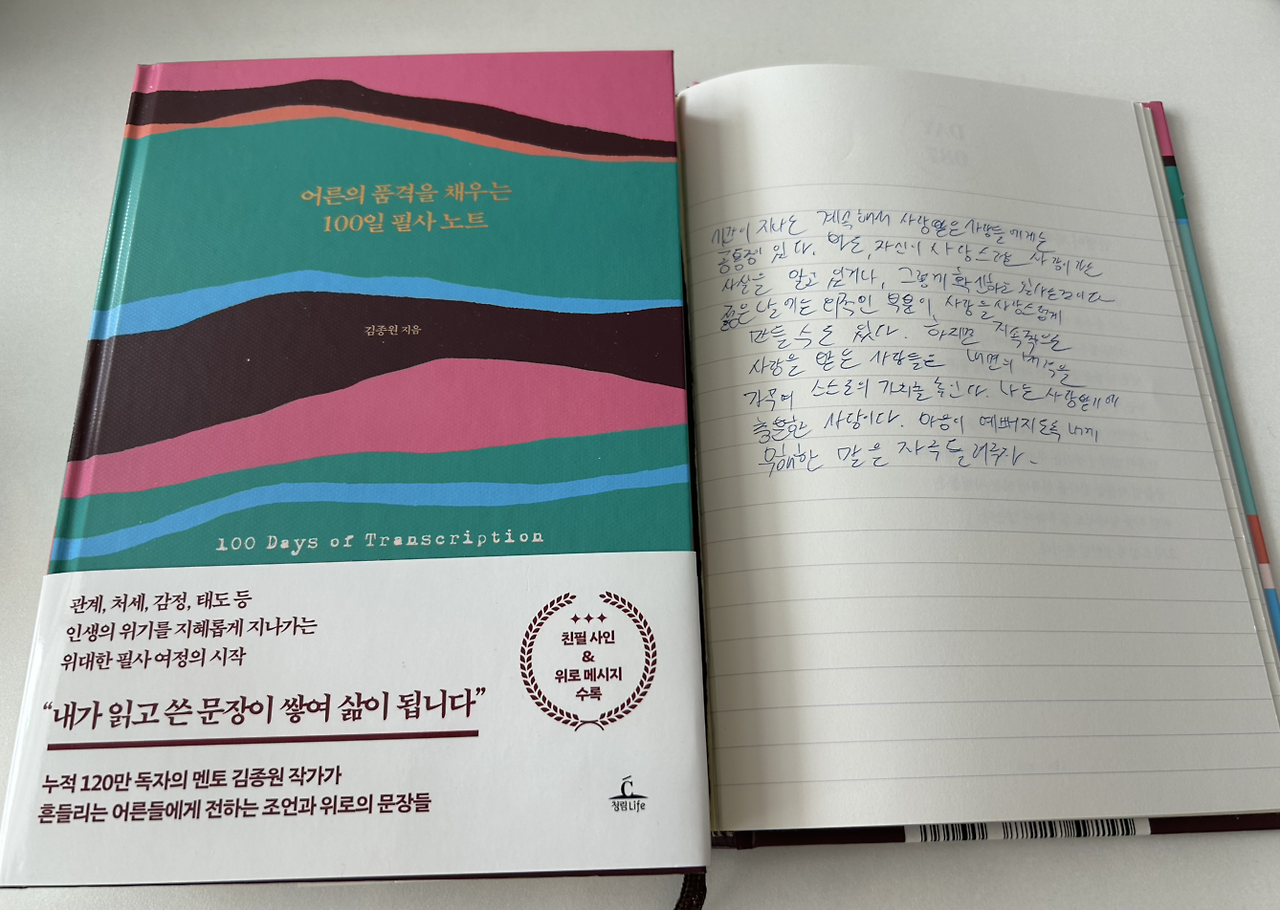 어른의 품격을 채우는
100일 필사 노트
김종원 지음
100 Days of Transcription
관계, 처세, 감정, 태도 등
인생의 위기를 지혜롭게 지나가는
위대한 필사 여정의 시작
“내가 읽고 쓴 문장이 쌓여 삶이 됩니다”
누적 120만 독자의 멘토 김종원 작가가
흔들리는 어른들에게 전하는 조언과 위로의 문장들
✦✦✦
친필 사인
&
위로 메시지
수록
청림Life
DAY
087
시간이 지나도 계속해서 사랑받은 사람들에게는
공통점이 있다. 바로, 자신이 사랑스러운 사람이라는
사실을 알고 있거나, 그렇게 확신하고 산다는 것이다
젊은 날에는 외적인 부분이 사람을 사랑스럽게
만들 수도 있다. 하지만 지속적으로
사랑을 받은 사람들은 내면의 매력을
가꾸며 스스로의 가치를 높인다. 나는 사랑받기에
충분한 사람이다. 마음이 예뻐지도록 내게
무해한 말을 자주 들려주자.